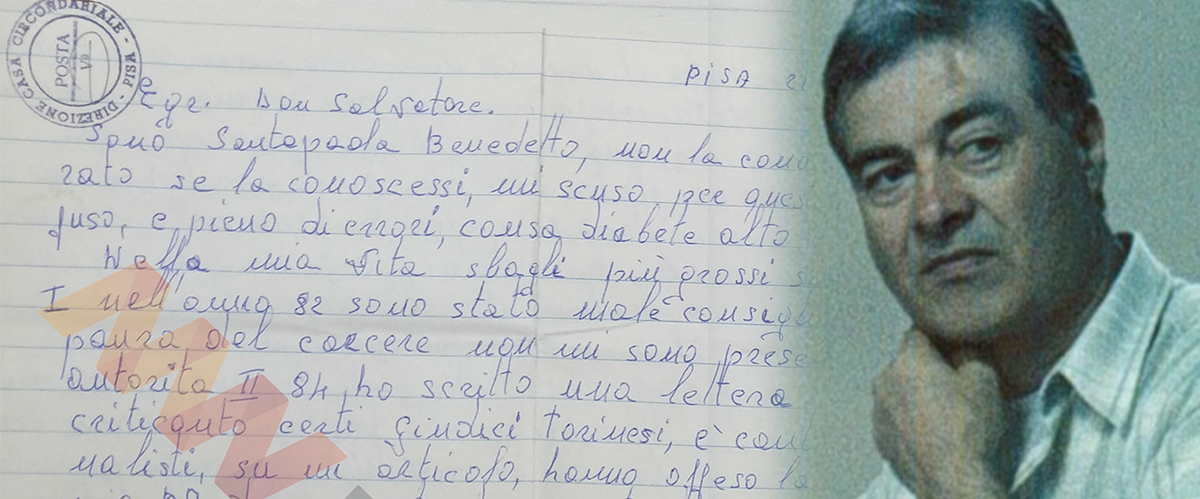 DIREZIONE CASA CIRCONDARIALE - PISA -
POSTA
PISA 21
Ege. Don Salvatore.
Sono Santapaola Benedetto, non la cono
rato se la conoscessi, mi scuso, per ques
fuso, e pieno di errori, causa diabete alto
Nella mia vita sbagli più grossi s
I nell'anno 82 sono stato male consigl
paura del carcere non mi sono prese
autorita II 84 ho scritto una lettera
criticato certi giudici torinesi, e cont
nalisti, su un articolo, hanno offeso la